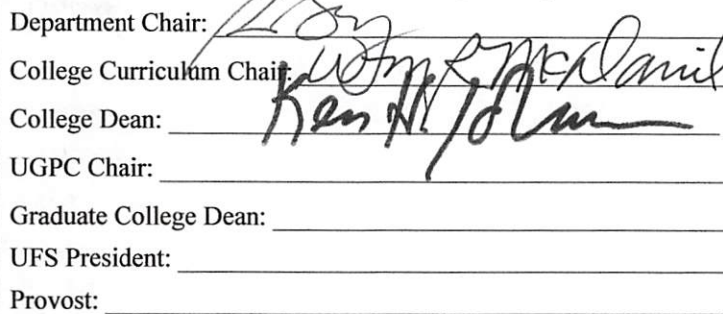 Department Chair:
College Curriculum Chair: Wm R McDaniel
College Dean: Ken H Johnson
UGPC Chair:
Graduate College Dean:
UFS President:
Provost: